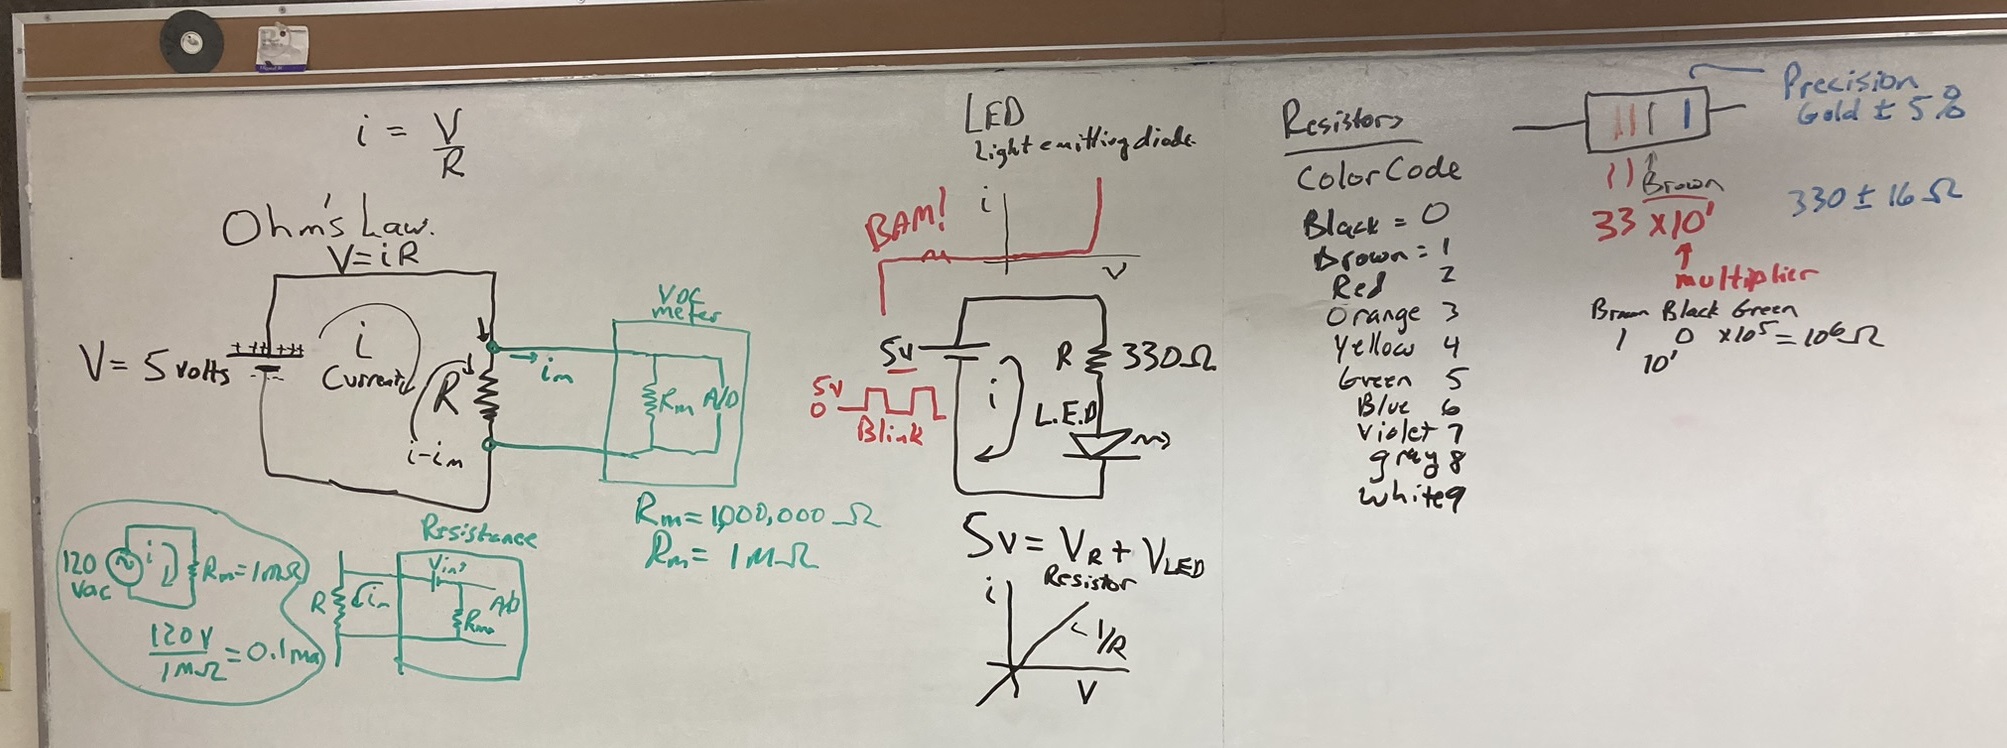 i = V/R
Ohm's Law.
V = iR
V = 5 volts
+++ +++
i
Current
R
i-im
im
VDC
meter
Rm
A/D
Rm = 1,000,000 Ω
Rm = 1MΩ
120
Vac
i
Rm = 1MΩ
120V/1MΩ = 0.1ma
Resistance
R
im
Vint
A/D
Rm
LED
Light emitting diode
BAM!
i
V
5V
R
330Ω
i
L.E.D
5V
0
Blink
5V = VR + VLED
Resistor
i
1/R
V
Resistors
Color Code
Black = 0
Brown = 1
Red 2
Orange 3
Yellow 4
Green 5
Blue 6
Violet 7
gray 8
white 9
Precision
Gold ± 5%
Brown
33 x10¹
multiplier
330 ± 16 Ω
Brown Black Green
1 0 x10⁵ = 10⁶Ω
10¹